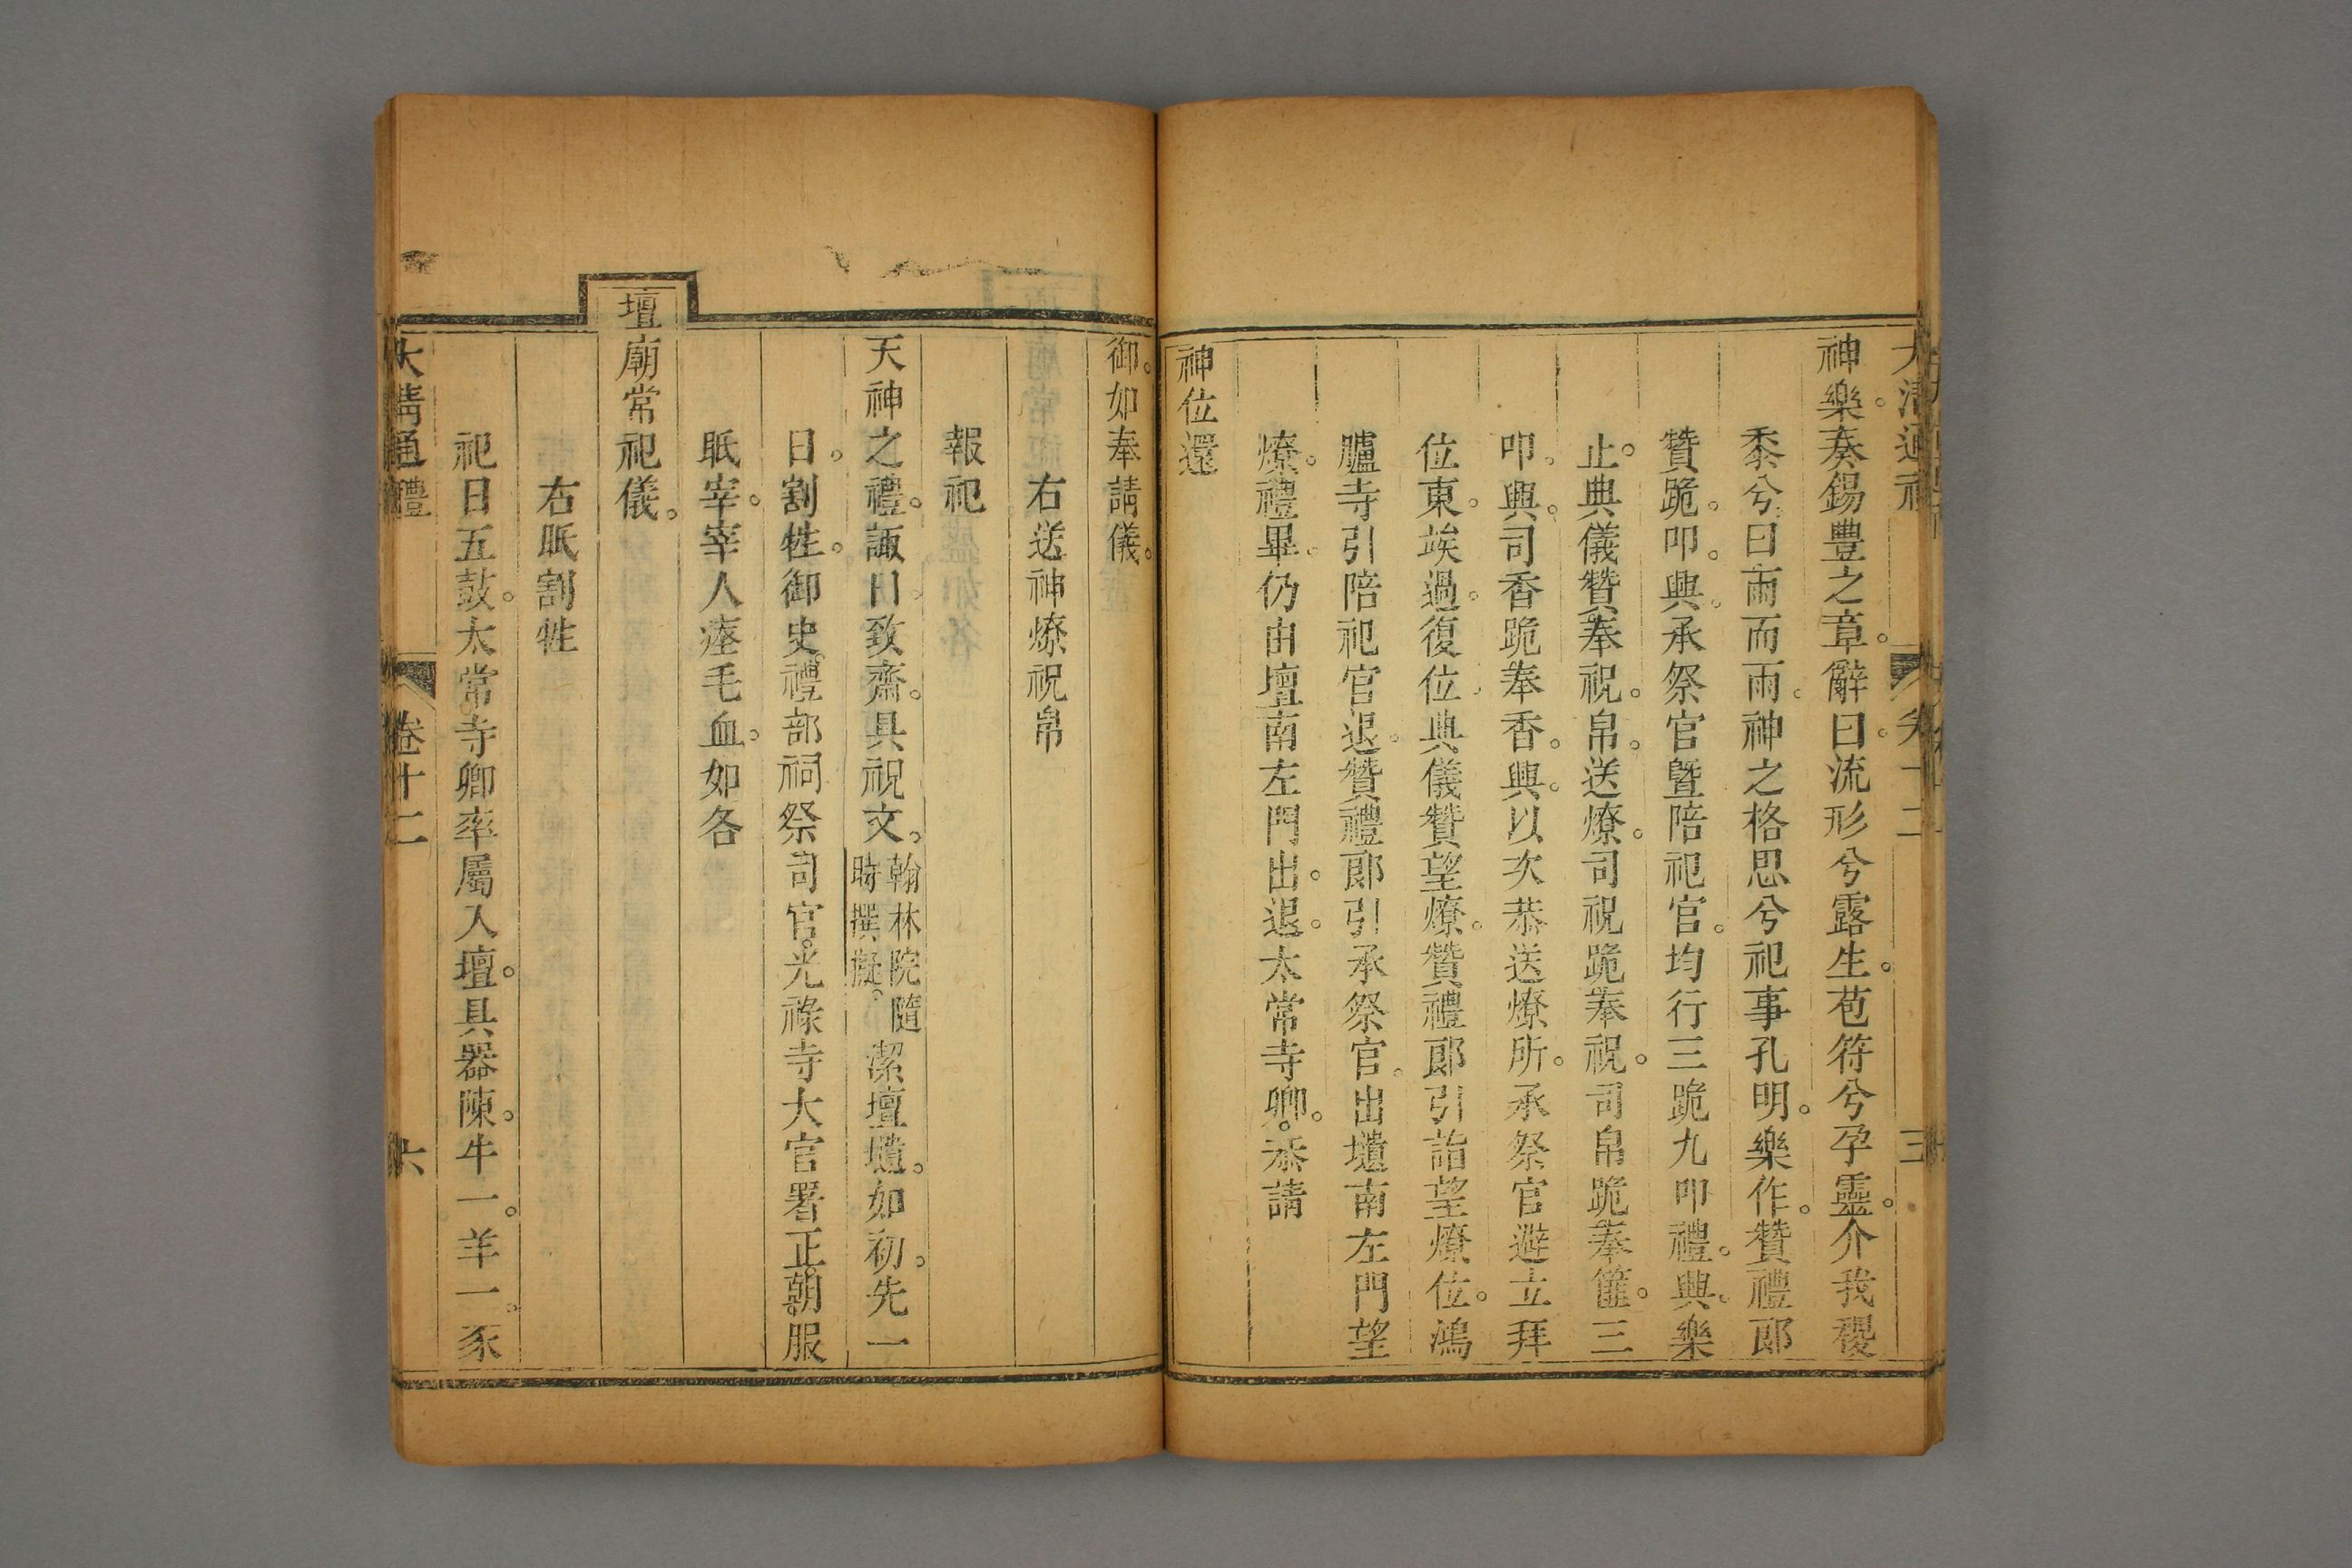 神樂奏錫豐之章。辭曰。流形兮露生。苞符兮孕靈。介我稷
黍兮曰雨而雨。神之格思兮祀事孔明。樂作。贊禮郎
贊跪。叩。興。承祭官曁陪祀官。均行三跪九叩禮。興。樂
止。典儀贊奉祝。帛。送燎。司祝跪奉祝。司帛跪奉篚。三
叩。興。司香跪奉香。興。以次恭送燎所。承祭官避立拜
位東。竢過。復位。典儀贊望燎。贊禮郎引詣望燎位。鴻
臚寺引陪祀官退。贊禮郎引承祭官。出壝南左門望
燎。禮畢。仍由壇南左門出。退。太常寺卿。恭請
神位還
御。如奉請儀。
右送神燎祝帛
報祀
天神之禮。諏日。致齋。具祝文。翰林院隨時撰擬。潔壇壝。如初。先一
日。割牲。御史。禮部祠祭司官。光祿寺大官署正。朝服
眡宰。宰人瘞毛血。如各
壇廟常祀儀。
右眡割牲
祀日五鼓。太常寺卿率屬入壇。具器陳。牛一。羊一。豕
大清通禮 卷十二 六